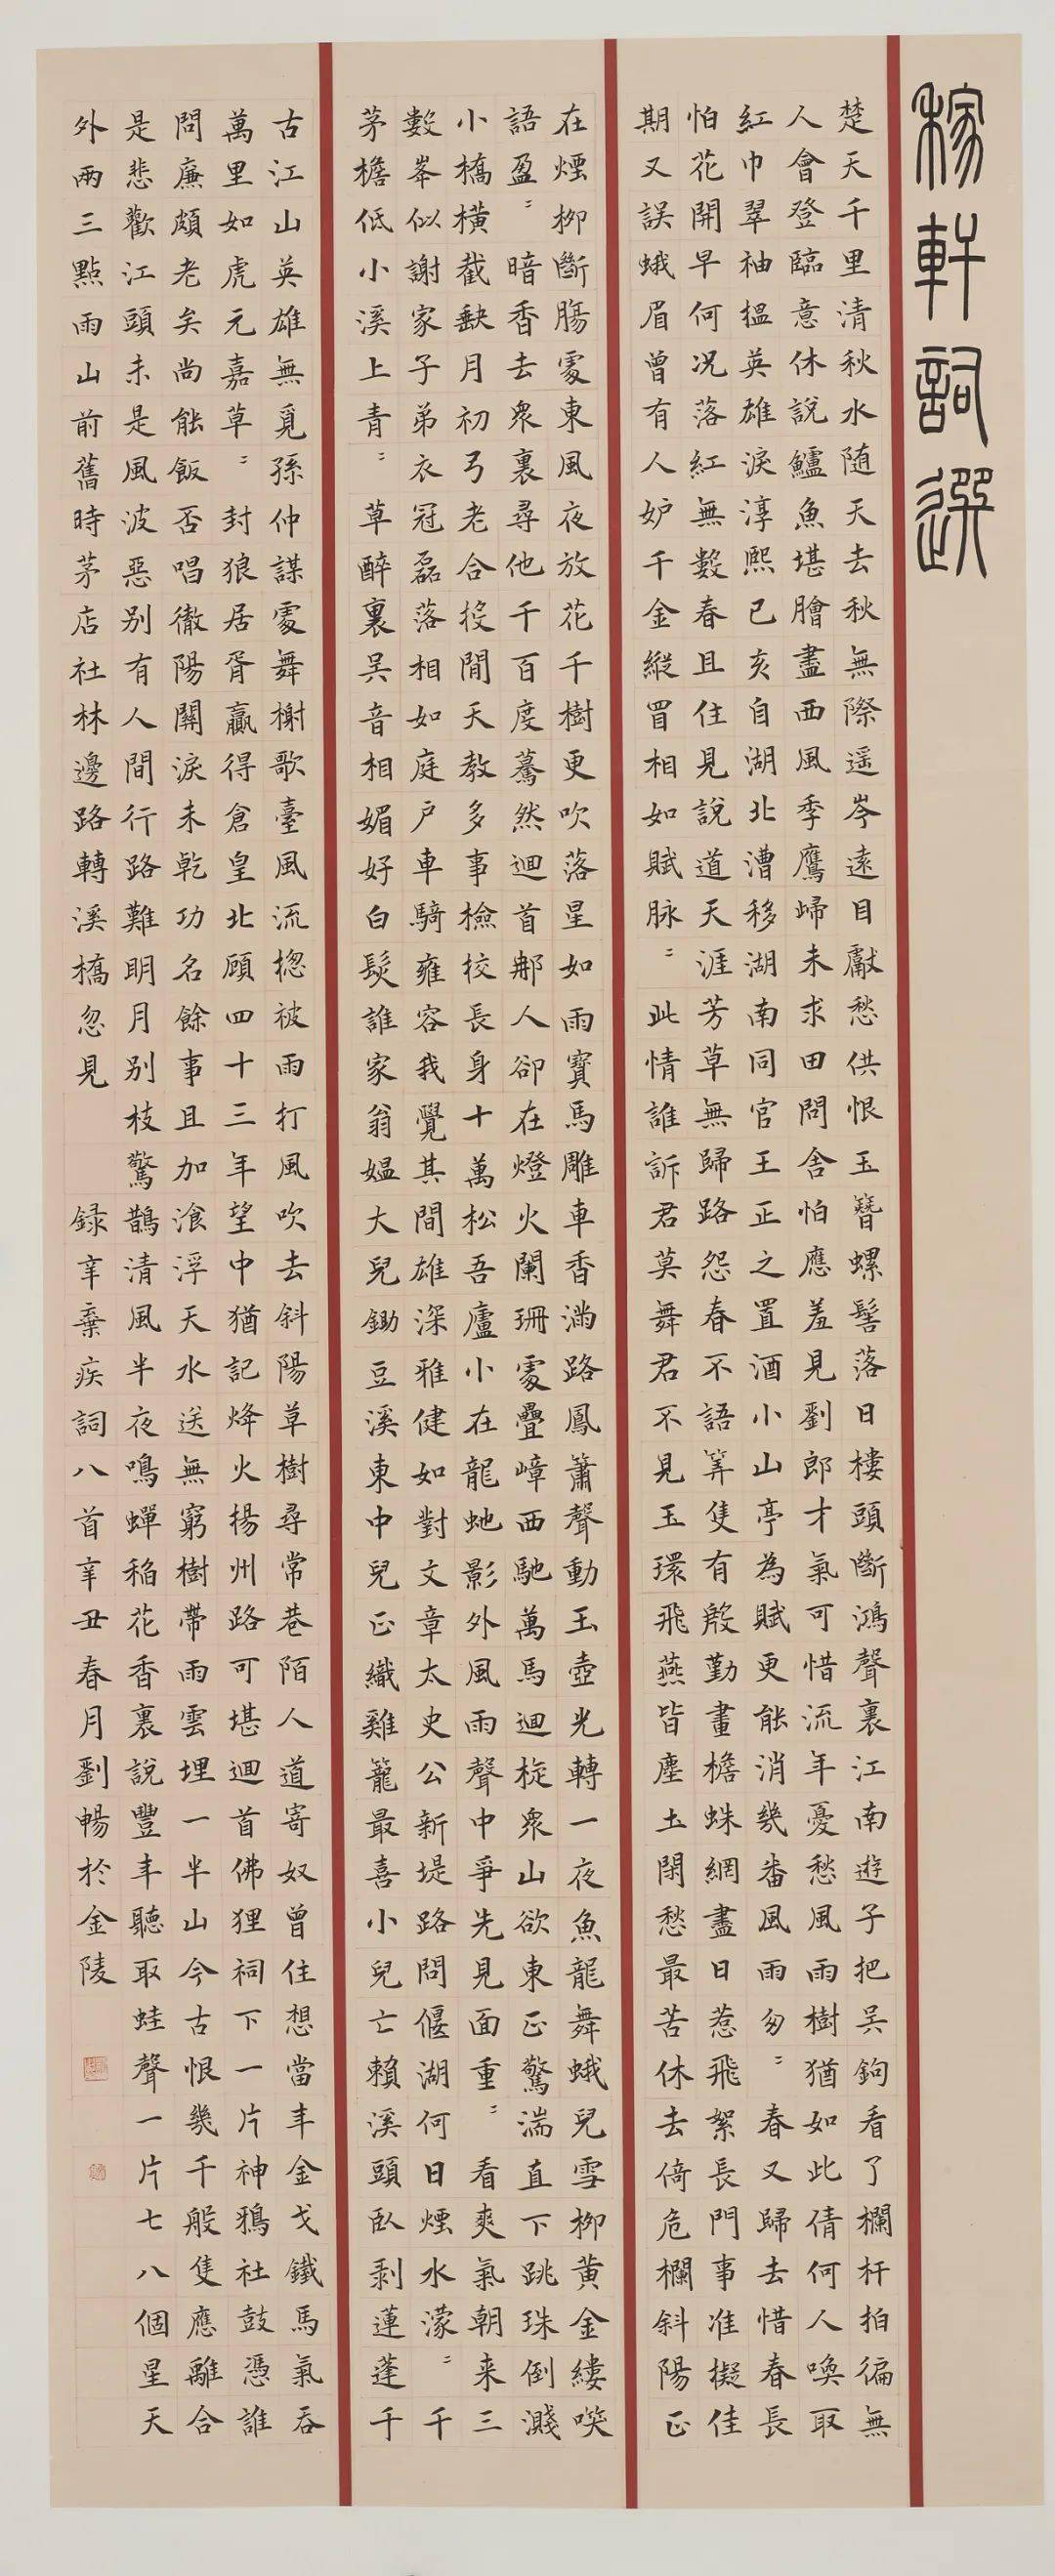 稼軒詞選
楚天千里清秋水随天去秋無際遥岑遠目獻愁供恨玉簪螺髻落日樓頭斷鴻聲裏江南遊子把吴鉤看了欄杆拍徧無
人會登臨意休說鱸魚堪膾盡西風季鷹歸未求田問舍怕應羞見劉郎才氣可惜流年憂愁風雨樹猶如此倩何人喚取
紅巾翠袖搵英雄淚淳熙己亥自湖北漕移湖南同官王正之置酒小山亭為賦更能消幾番風雨匆〻春又歸去惜春長
怕花開早何况落紅無數春且住見說道天涯芳草無歸路怨春不語筭隻有殷勤畫檐蛛網盡日惹飛絮長門事准擬佳
期又誤蛾眉曾有人妒千金縱買相如賦脉〻此情誰訴君莫舞君不見玉環飛燕皆塵土閑愁最苦休去倚危欄斜陽正
在煙柳斷腸處東風夜放花千樹更吹落星如雨寶馬雕車香滿路鳳簫聲動玉壺光轉一夜魚龍舞蛾兒雪柳黄金縷笑
語盈〻暗香去衆裏尋他千百度驀然迴首那人卻在燈火闌珊處疊嶂西馳萬馬迴旋衆山欲東正驚湍直下跳珠倒濺
小橋橫截缺月初弓老合投閒天教多事檢校長身十萬松吾廬小在龍虵影外風雨聲中爭先見面重〻看爽氣朝来三
數峯似謝家子弟衣冠磊落相如庭户車騎雍容我覺其間雄深雅健如對文章太史公新堤路問偃湖何日煙水濛〻千
茅檐低小溪上青〻草醉裏吴音相媚好白髮誰家翁媼大兒鋤豆溪東中兒正織雞籠最喜小兒亡賴溪頭臥剥蓮蓬千
古江山英雄無覓孫仲謀處舞榭歌臺風流揔被雨打風吹去斜陽草樹尋常巷陌人道寄奴曾住想當年金戈鐵馬氣吞
萬里如虎元嘉草〻封狼居胥贏得倉皇北顧四十三年望中猶記烽火揚州路可堪迴首佛狸祠下一片神鴉社鼓憑誰
問廉頗老矣尚能飯否唱徹陽關淚未乾功名餘事且加飡浮天水送無窮樹帶雨雲埋一半山今古恨幾千般隻應離合
是悲歡江頭未是風波惡别有人間行路難明月别枝驚鵲清風半夜鳴蟬稻花香裏說豐年聽取蛙聲一片七八個星天
外兩三點雨山前舊時茅店社林邊路轉溪橋忽見 録辛棄疾詞八首辛丑春月劉暢於金陵